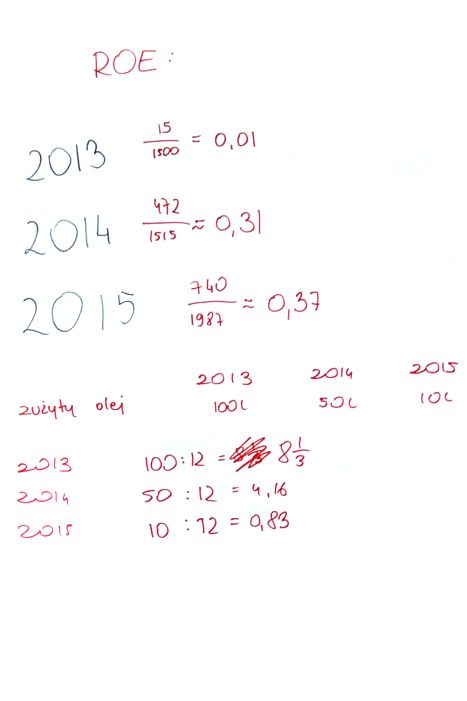 ROE:
2013 15/1500 = 0,01
2014 472/1515 ≈ 0,31
2015 740/1987 ≈ 0,37
2013 2014 2015
zużyty olej 100L 50L 10L
2013 100:12 = 8 1/3
2014 50:12 = 4,16
2015 10:12 = 0,83